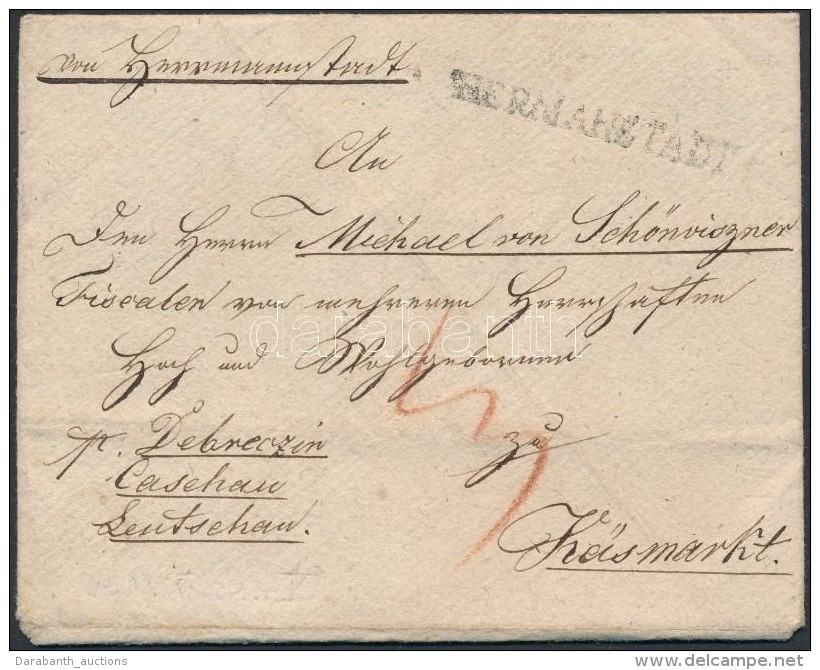 von Herrmannstadt
HERMANSTADT
An
Den Herrn Michael von Schönviszner
Fiscalen von mehreren Herrschaften
Hoch und Wohlgebornen
zu
p. Debreczin
Caschau
Leutschau.
Käsmarkt.
darabanth
Darabanth_auctions
delcampe.net